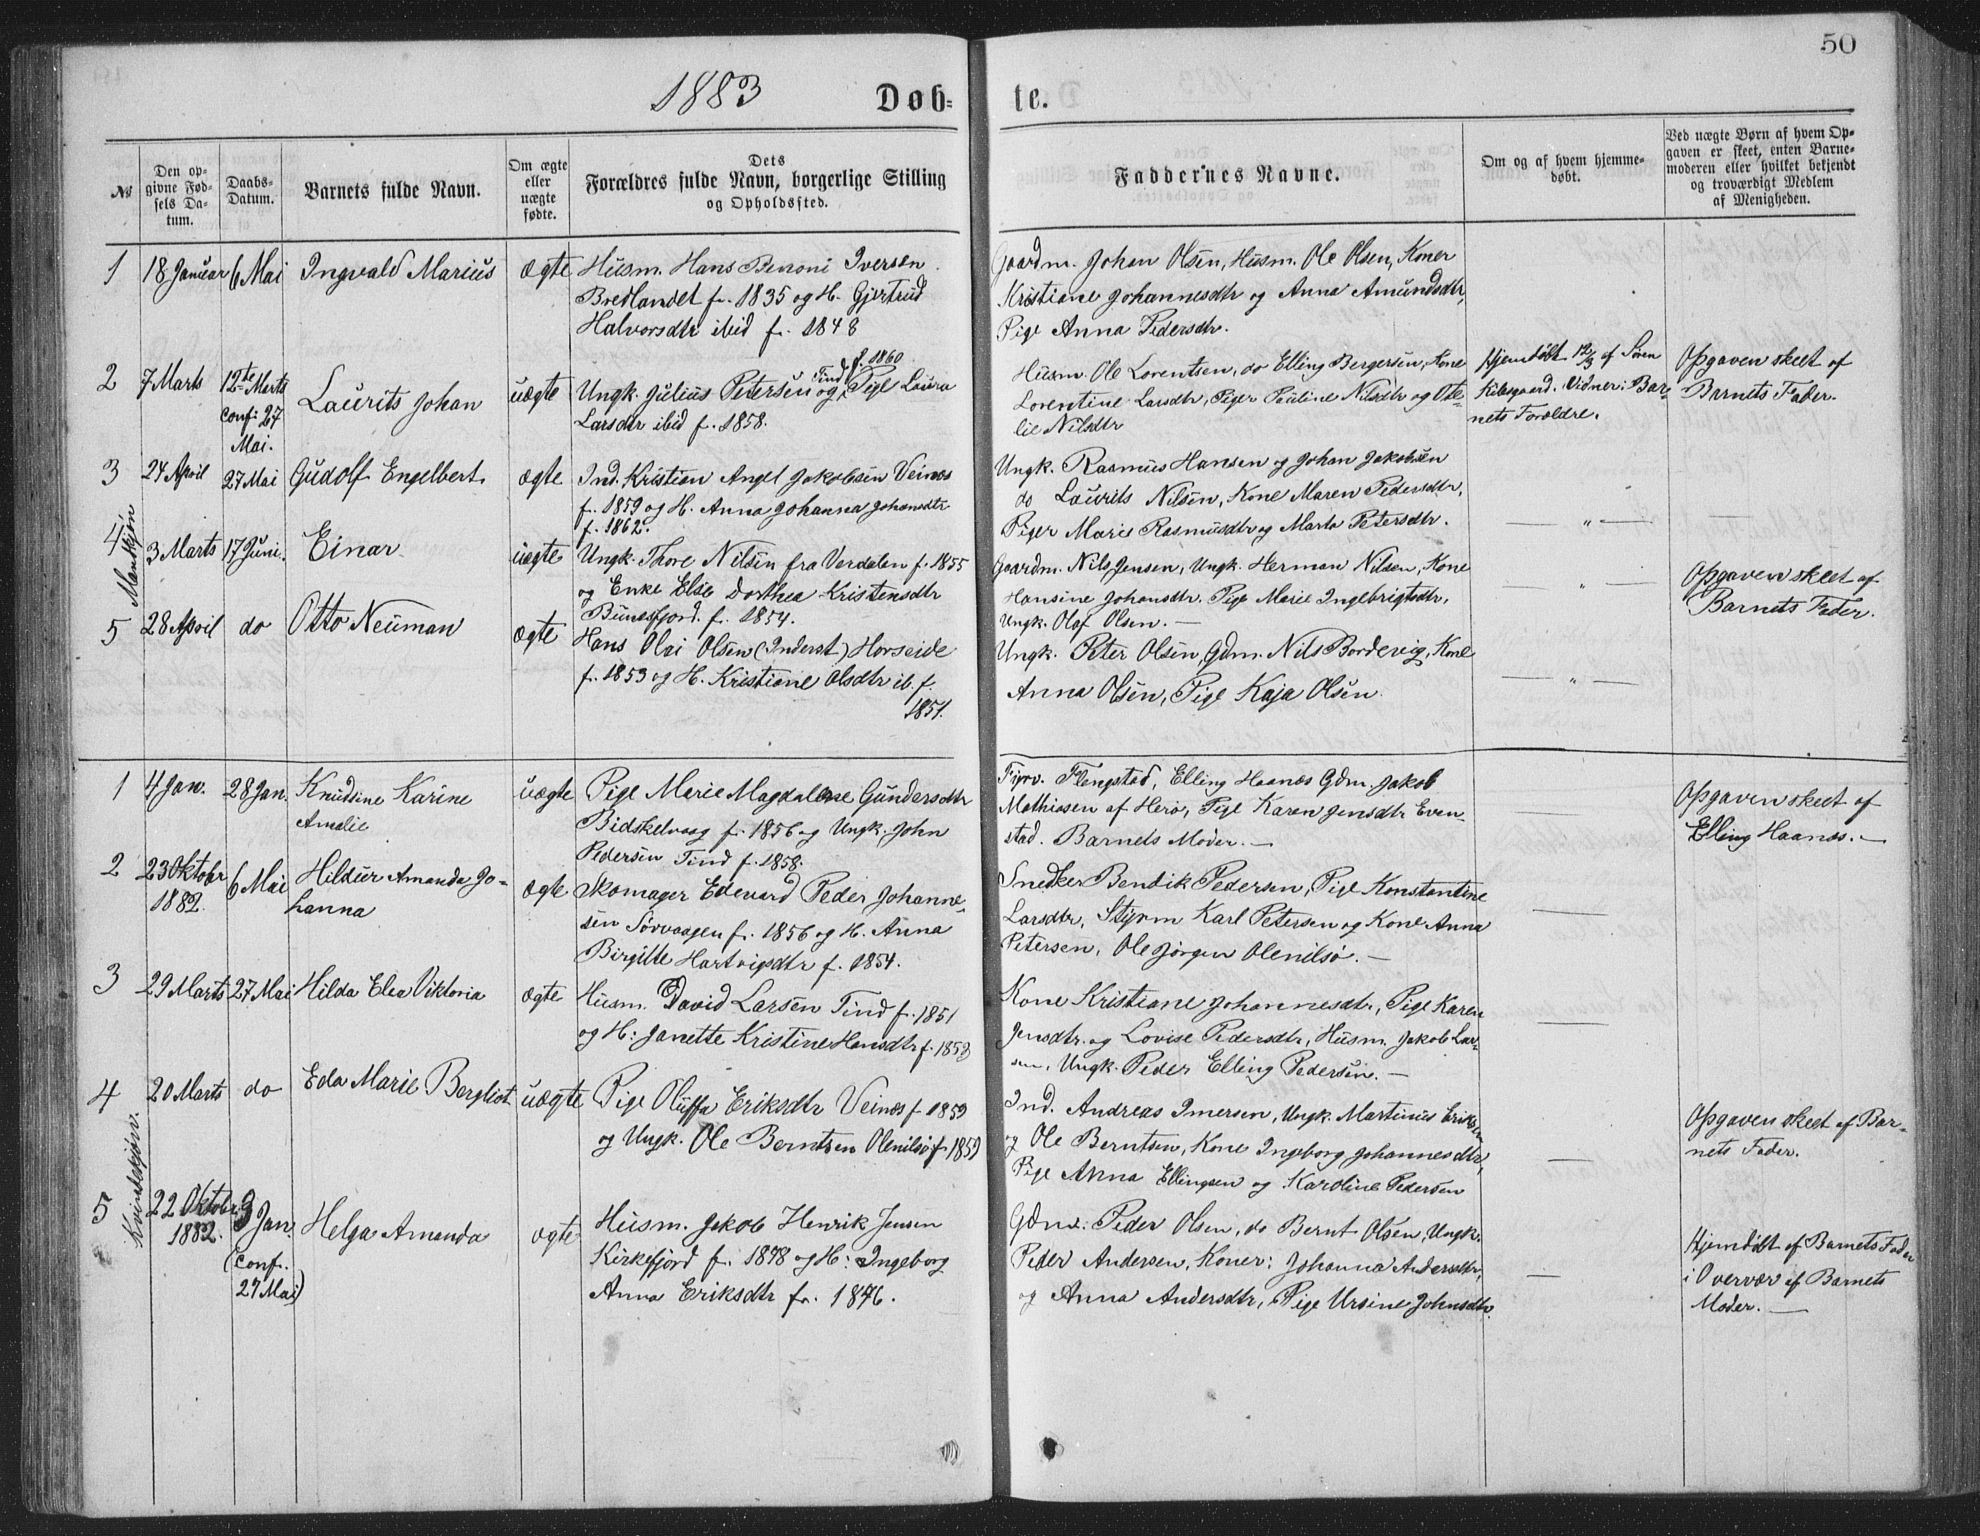 50
1883 Døb= te.
№
Den op-
givne Fød-
sels Da-
tum.
Daabs-
Datum.
Barnets fulde Navn.
Om ægte
eller
uægte
fødte.
Dets
Forældres fulde Navn, borgerlige Stilling
og Opholdssted.
Faddernes Navne.
Om og af hvem hjemme-
døbt.
Ved uægte Børn af hvem Op-
gaven er skeet, enten Barne-
moderen eller hvilket bekjendt
og troværdigt Medlem
af Menigheden.
Mandkjøn
1 18 Januar 6 Mai Ingvald Marius ægte Husm. Hans Benoni Iversen
Bredlandet f. 1835 og H. Gjertrud
Halvorsdtr ibid f. 1848
Gaardm. Johan Olsen, Husm. Ole Olsen, Koner
Kristiane Johannesdtr og Anna Amundsdtr,
Pige Anna Pedersdtr.
2 7 Marts 12te Marts
conf: 27
Mai.
Laurits Johan uægte Ungk. Julius Petersen Tind f. 1860 og Pige Laura
Larsdtr ibid f. 1858.
Husm. Ole Lorentsen, do Elling Bergersen, Kone
Lorentine Larsdtr, Piger Pauline Nilsdtr og Ote-
lie Nilsdtr
Hjemdøbt 12/3 af Søren
Kilesgaard. Vidner: Bar-
nets Forældre.
Opgaven skeet af
Barnets Fader.
3 24 April 27 Mai Gudolf Engelbert ægte Ind. Kristian Angel Jakobsen Veines
f. 1859 og H. Anna Johanna Johansdtr
f. 1862.
Ungk. Rasmus Hansen og Johan Jakobsen
do Laurits Nilsen, Kone Maren Pedersdtr,
Piger Marie Rasmusdtr og Marta Petersdtr.
— " —
4 3 Marts 17 Juni. Einar uægte Ungk. Thore Nilsen fra Verdalen f. 1855
og Enke Else Dorthea Kristensdtr
Bunesfjord. f. 1854.
Gaardm. Nils Jensen, Ungk. Herman Nilsen, Kone
Hansine Johansdtr. Pige Marie Ingebrigtsdtr,
Ungk. Olaf Olsen. —
— " —
Opgaven skeet af
Barnets Fader.
5 28 April do Otto Neuman ægte Hans Olai Olsen (Inderst) Horseide
f. 1853 og H. Kristiane Olsdtr ib. f.
1851.
Ungk. Peter Olsen, Gdm. Nils Bordevig, Kone
Anna Olsen, Pige Kaja Olsen.
— " —
Kvindekjøn.
1 4 Jan. 28 Jan. Knudsine Karine
Amelie
uægte Pige Marie Magdalene Gundersdtr
Bidskelvaag f. 1856 og Ungk. John
Pedersen Tind f. 1858.
Fyrv. Flengstad, Elling Haanæs Gdm. Jakob
Mathiesen af Herø, Pige Karen Jensdtr Even-
stad. Barnets Moder. —
—
Opgaven skeet af
Elling Haanæs. —
2 23 Oktobr
1882.
6 Mai Hildur Amanda Jo-
hanna
ægte Skomager Edevard Peder Johanne-
sen Sørvaagen f. 1856 og H. Anna
Birgitte Hartvigsdtr f. 1854.
Snedker Bendik Pedersen, Pige Konstantine
Larsdtr, Styrm Karl Petersen og Kone Anna
Petersen, Ole Jørgen Olenilsø. —
—
3 29 Marts 27 Mai Hilda Elea Viktoria ægte Husm. David Larsen Tind f. 1851
og H: Janette Kristine Hansdtr f. 1853
Kone Kristiane Johannesdtr, Pige Karen
Jensdtr. og Lovise Pedersdtr, Husm. Jakob Lar-
sen, Ungk. Peder Elling Pedersen. —
—
4 20 Marts do Eda Marie Bergliot uægte Pige Oluffa Eriksdtr Veines f. 1859
og Ungk. Ole Berntsen Olenilsø f. 1859
Ind. Andreas Imersen, Ungk. Martinus Eriksen
og Ole Berntsen, Kone Ingeborg Johannesdtr,
Pige Anna Ellingsen og Karoline Pedersen
—
Opgaven skeet af Bar-
nets Fader.
5 22 Oktobr
1882.
3 Jan.
(conf.
27 Mai)
Helga Amanda ægte Husm. Jakob Henrik Jensen
Kirkefjord f. 1848 og H: Ingeborg
Anna Eriksdtr f. 1846.
Gdm: Peder Olsen, do Bernt Olsen, Ungk.
Peder Andersen, Koner: Johanna Andersdtr,
og Anna Andersdtr, Pige Ursine Johnsdtr.
—
Hjemdøbt af Barnets Fader
i Overvær af Barnets
Moder. —